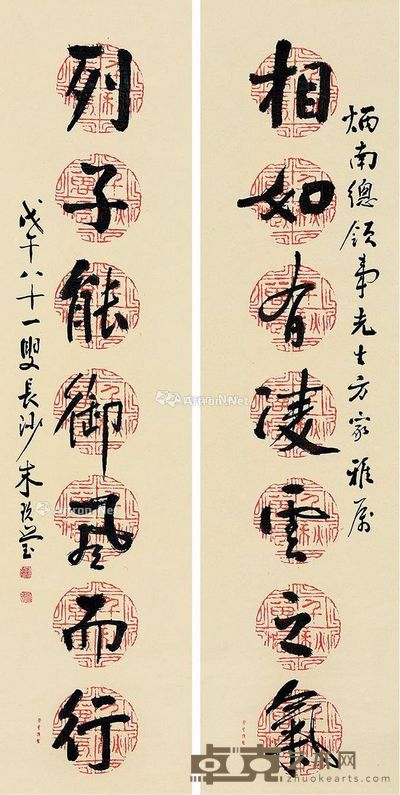 炳南總領事先生方家雅屬
相如有凌雲之氣
列子能御風而行
戊午八十一叟長沙朱玖瑩
Artron.Net
卓克艺术网
zhuokearts.com